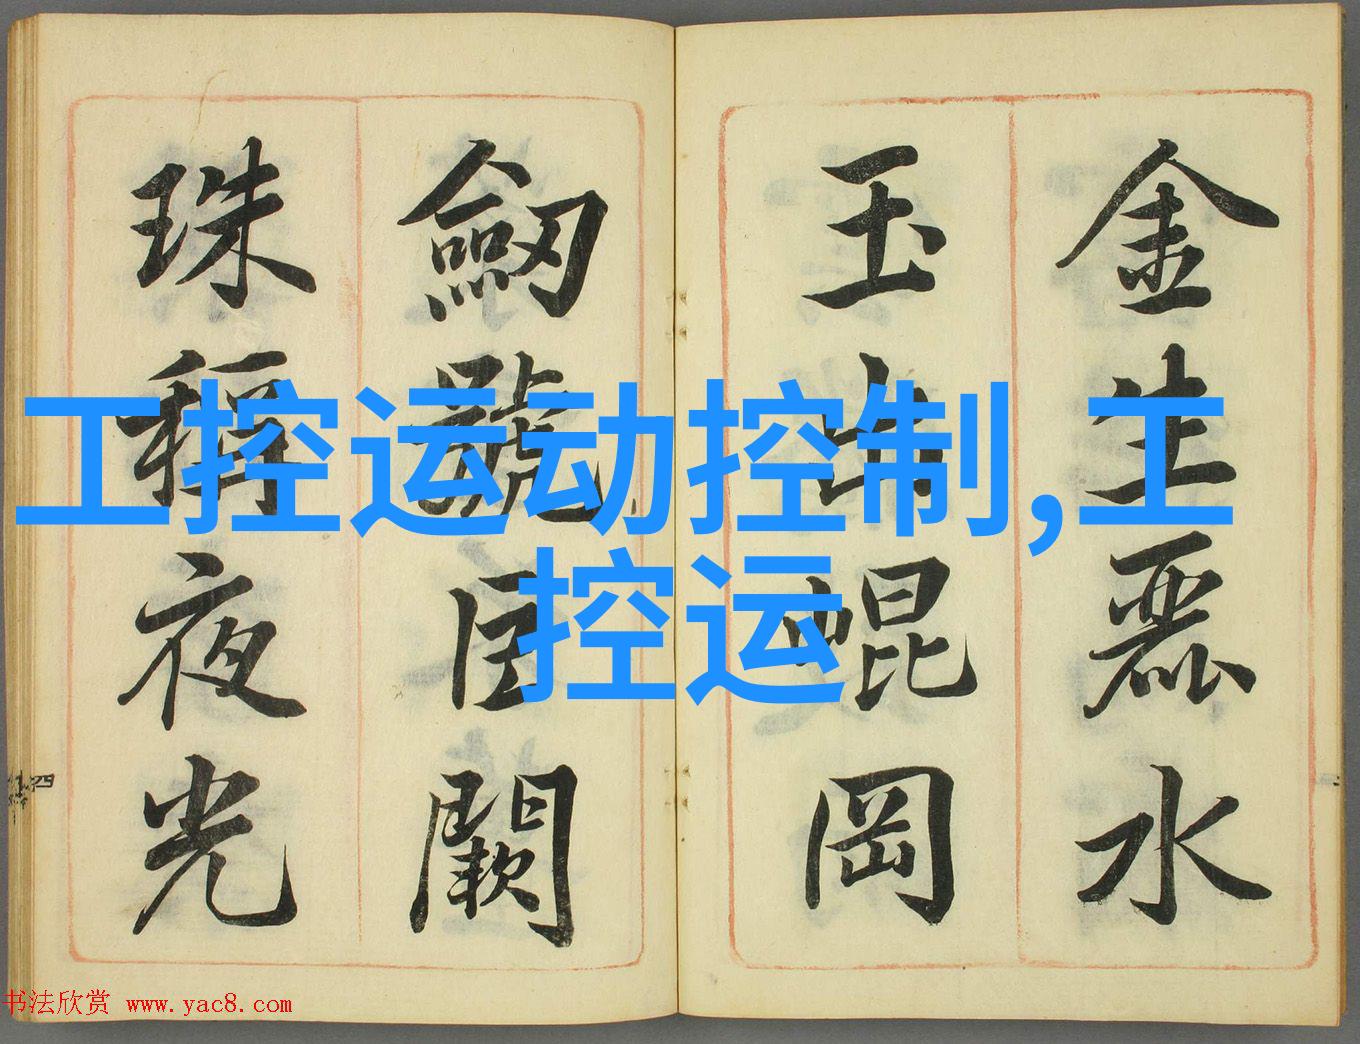 金生麗水
玉出崐岡
劒號巨闕
珠稱夜光
四
工控运动控制,工
控运
书法欣赏 www.yac8.com